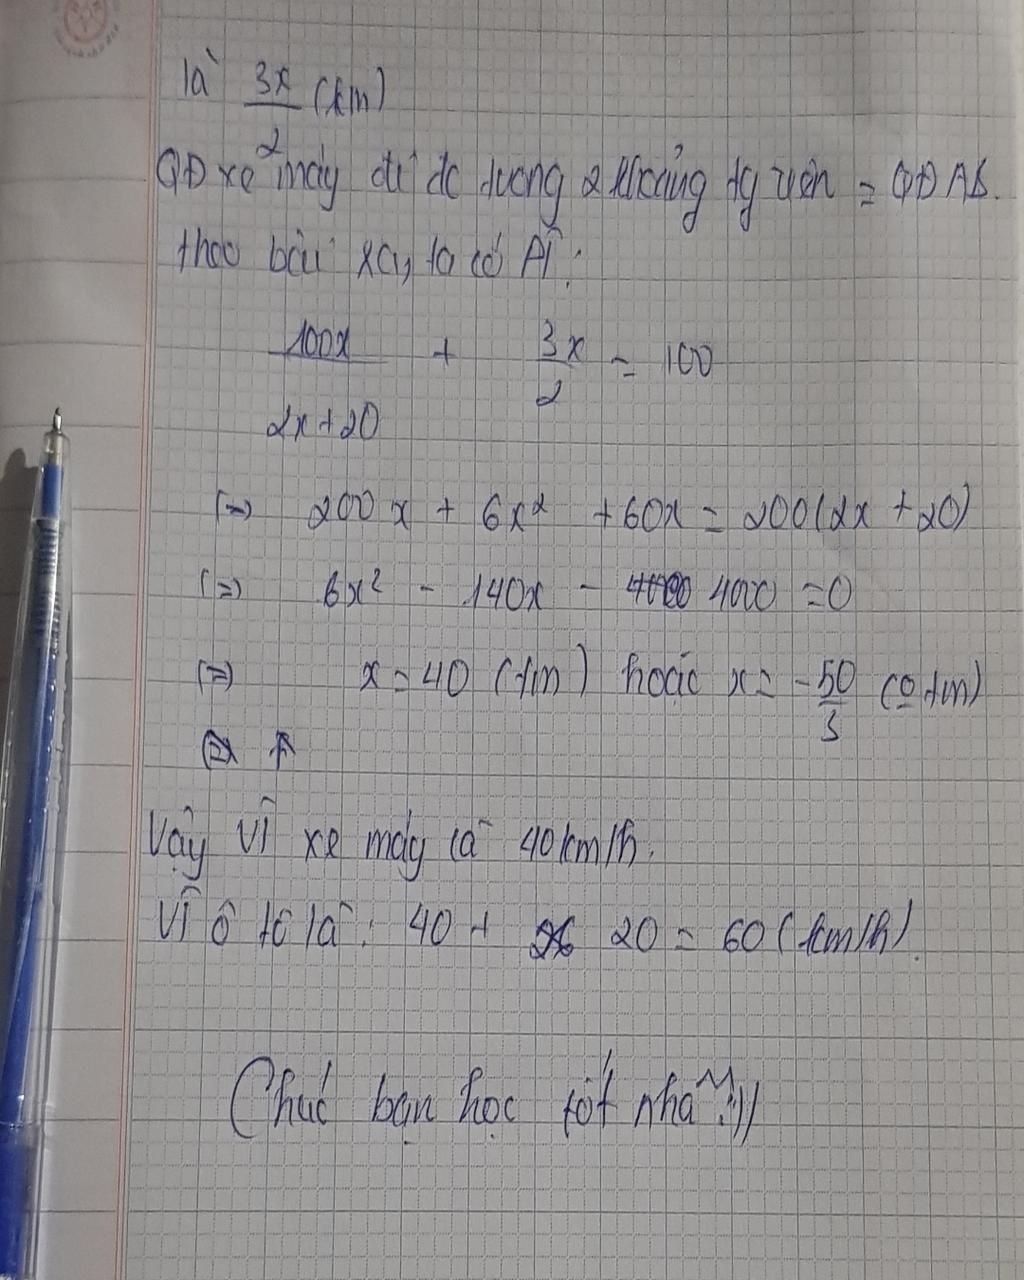 là 3x/2 (km)
QĐ xe máy đi đc trong 2 khoảng tg trên = QĐ AB.
theo bài ra, ta có PT:
100x/2x+20 + 3x/2 = 100
(=) 200x + 6x² + 60x = 200(2x + 20)
(=) 6x² - 140x - 4000 = 0
(=) x = 40 (tm) hoặc x = -50/3 (o tm)
Vậy VT xe máy là 40km/h.
VT ô tô là: 40 + 20 = 60 (km/h).
Chúc bạn học tốt nhá ^^:))